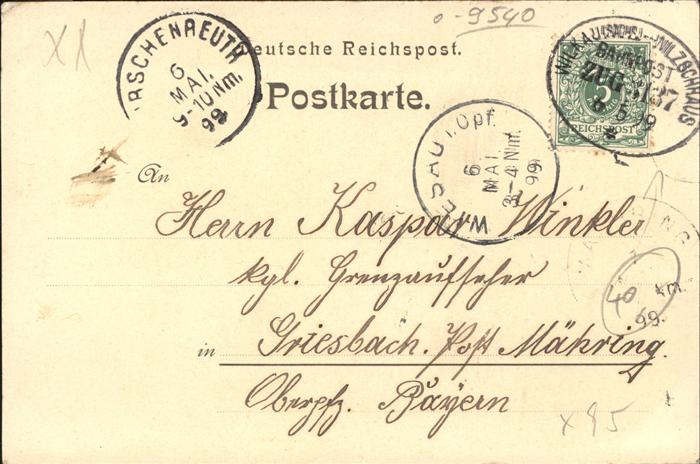 X1
0-9540
Deutsche Reichspost.
Postkarte.
RSCHENREUTH
6
MAI.
9-10 Nm.
99
BAHNPOST
ZUG
6 5 99
5
REICHSPOST
6
MAI.
3-4 Nm.
99
An
Herrn Kaspar Winkler
kgl. Grenzaufseher
40
99.
in Griesbach. Post Mähring.
Oberpfz. Bayern
x 95